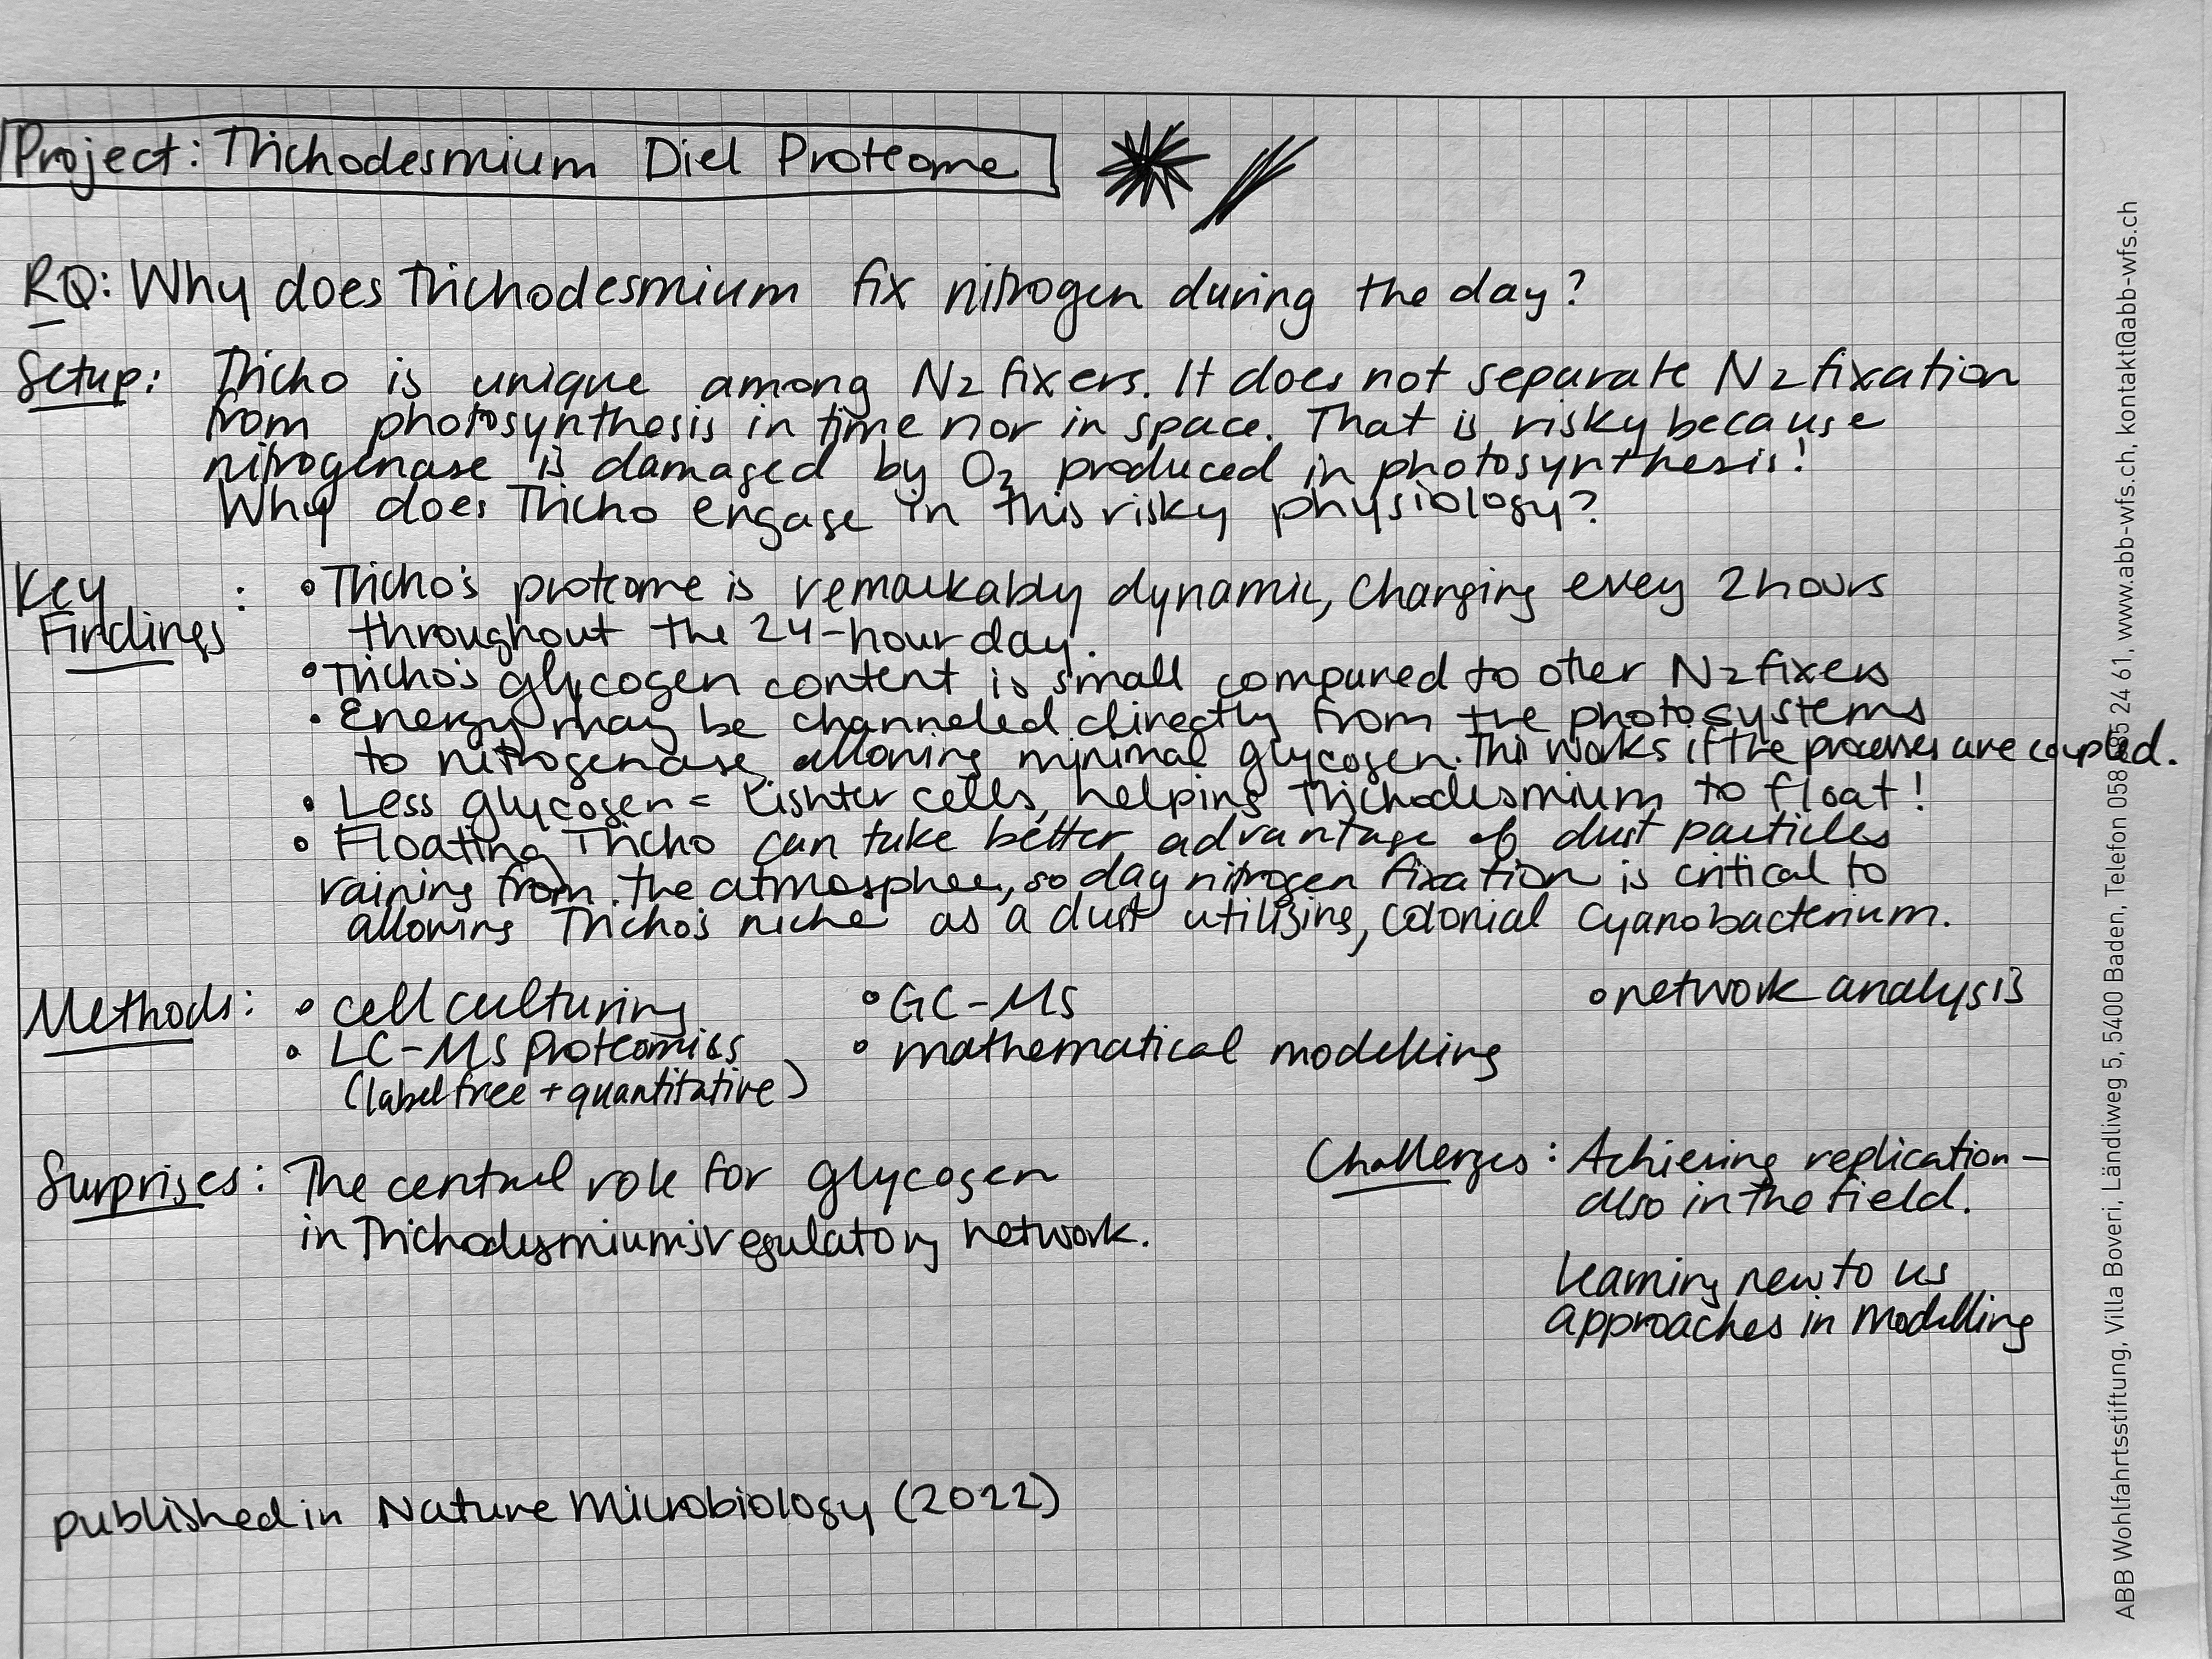 Project: Trichodesmium Diel Proteome
RQ: Why does Trichodesmium fix nitrogen during the day?
Setup: Tricho is unique among N2 fixers. It does not separate N2 fixation
from photosynthesis in time nor in space. That is risky because
nitrogenase is damaged by O2 produced in photosynthesis!
Why does Tricho engage in this risky physiology?
Key Findings:
• Tricho's proteome is remarkably dynamic, changing every 2 hours
throughout the 24-hour day.
• Tricho's glycogen content is small compared to other N2 fixers
• Energy may be channeled directly from the photosystems
to nitrogenase allowing minimal glycogen. This works if the processes are coupled.
• Less glycogen = Lighter cells, helping Trichodesmium to float!
• Floating Tricho can take better advantage of dust particles
raining from the atmosphere, so day nitrogen fixation is critical to
allowing Tricho's niche as a dust utilizing, colonial cyanobacterium.
Methods: • cell culturing
• LC-MS proteomics
(label free + quantitative)
• GC-MS
• mathematical modelling
• network analysis
Surprises: The central role for glycogen
in Trichodysmium's regulatory network.
Challenges: Achieving replication –
also in the field.
Learning new to us
approaches in modelling
published in Nature Microbiology (2022)
ABB Wohlfahrtsstiftung, Villa Boveri, Ländliweg 5, 5400 Baden, Telefon 058 585 24 61, www.abb-wfs.ch, kontakt@abb-wfs.ch